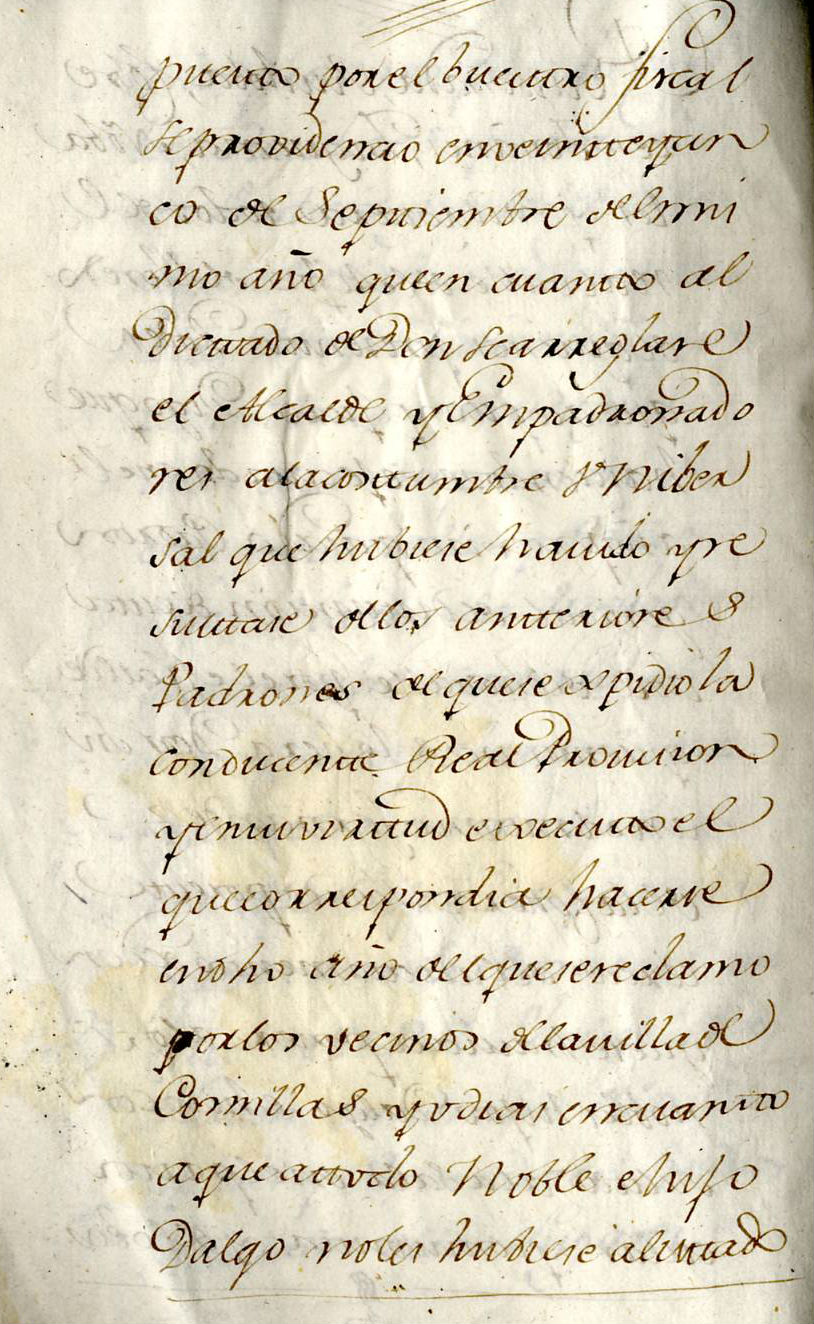 puesto por el buestro fiscal
se providencio en veintte y cin
co de Septiembre del mi
mo año que en cuantto al
Dictado de Don se arreglase
el Alcalde y Empadronado
res ala costtumbre Vniber
sal que hubiese havido y re
sulttase de los antteriores
Padrones de que se expidio la
conducentte Real Provision
y en su virttud executto el
que correspondia hacerse
en dho año del que se reclamo
por los vecinos de la villa de
Comillas y en cuantto
a que a ttodo Noble e hijo
Dalgo no les hubiese alisttado